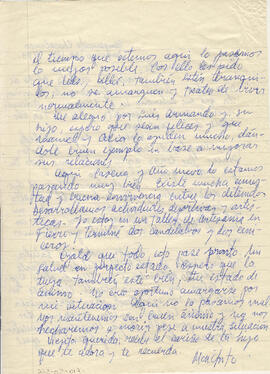 el tiempo que estemos aquí lo pasamos
lo mejor posible. Con ello les pido
que Uds., Lilli, también estén tranqui-
los, no se amarguen y traten de vivir
normalmente.
Me alegro por Luis Armando y su
hijo, espero que sean felices y que
Manuel y Alicia lo quieran mucho, dan-
dole buen ejemplo en base a mejorar
sus relaciones.
Aquí Pascua y Año nuevo lo estamos
pasando muy bien. Existe mucha amis-
tad y buena convivencia entre los detenidos
desarrollamos actividades deportivas y artís-
ticas. Yo estoy en un taller de artesanía en
fierro y terminé dos candelabros y dos cen-
iceros.
Ojalá que todo esto pase pronto. Mi
salud en perfecto estado. Espero que la
tuya también esté bien,
ánimo,
por mi situación. Aquí no lo pasamos mal
nos mantenemos con buen ánimo y no nos
echaremos a morir pese a nuestra situación
Viejita querida, recibe el cariño de tu hijo
que te adora y te recuerda.